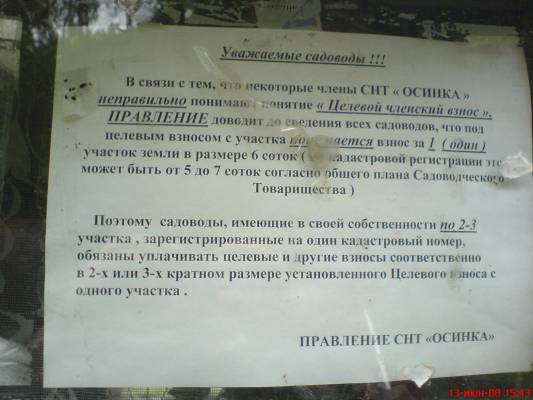 Уважаемые садоводы !!!
В связи с тем, что некоторые члены СНТ « ОСИНКА »
неправильно понимают понятие « Целевой членский взнос »,
ПРАВЛЕНИЕ доводит до сведения всех садоводов, что под
целевым взносом с участка понимается взнос за 1 ( один )
участок земли в размере 6 соток ( кадастровой регистрации это
может быть от 5 до 7 соток согласно общего плана Садоводческого
Товарищества )
Поэтому садоводы, имеющие в своей собственности по 2-3
участка , зарегистрированные на один кадастровый номер,
обязаны уплачивать целевые и другие взносы соответственно
в 2-х или 3-х кратном размере установленного Целевого взноса с
одного участка .
ПРАВЛЕНИЕ СНТ «ОСИНКА»
13-июн-08 15:43